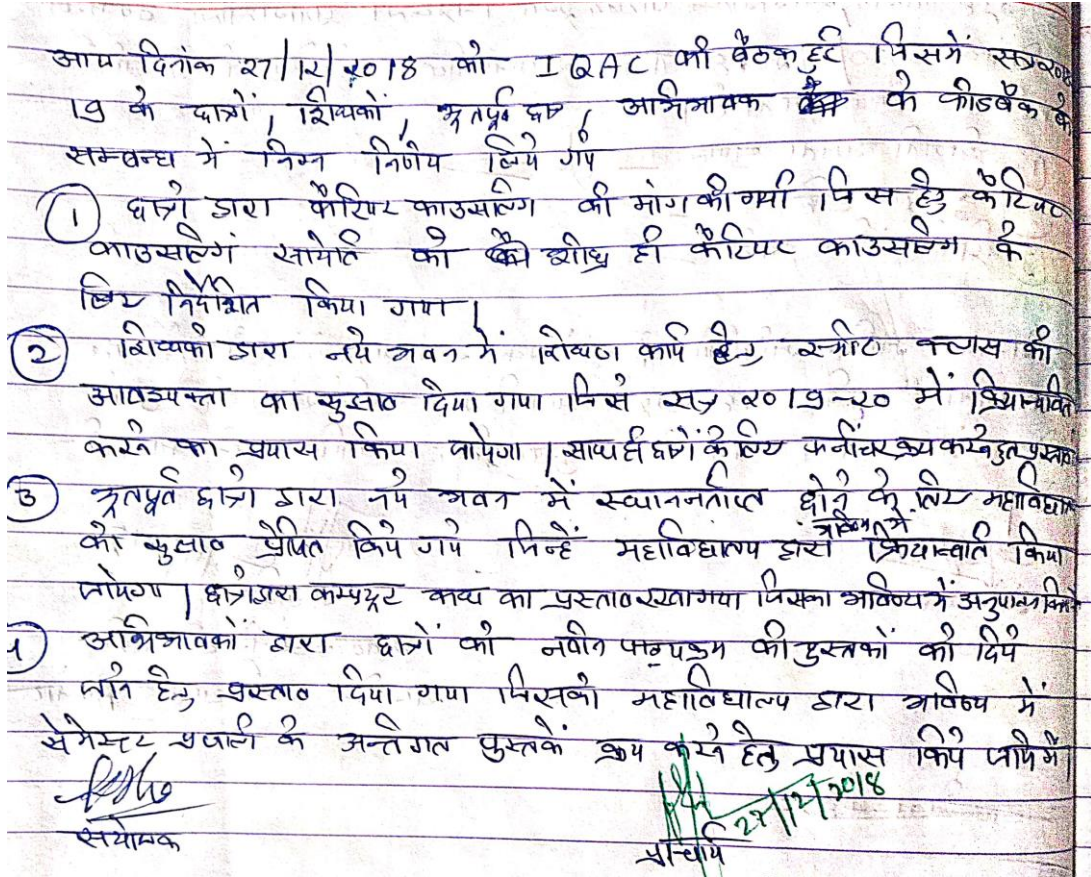 आज दिनांक 27/12/2018 को IQAC की बैठक हुई जिसमें सत्र 2018
19 के छात्रों, शिक्षकों, भूतपूर्व छात्र, अभिभावक के फीडबैक के
सम्बन्ध में निम्न निर्णय लिये गये
① छात्रों द्वारा कैरियर काउंसलिंग की मांग की गयी जिस हेतु कैरियर
काउंसलिंग समिति को शीघ्र ही कैरियर काउंसलिंग के
लिए निर्देशित किया गया।
② शिक्षकों द्वारा नये भवन में शिक्षण कार्य हेतु स्मार्ट क्लास की
आवश्यकता का सुझाव दिया गया जिसे सत्र 2019-20 में क्रियान्वित
करने का प्रयास किया जायेगा। साथ ही छात्रों के लिए फर्नीचर क्रय करने हेतु प्रस्ताव
③ भूतपूर्व छात्रों द्वारा नये भवन में स्थानान्तरित होने के लिए महाविद्यालय
को सुझाव प्रेषित किये गये जिन्हें महाविद्यालय द्वारा भविष्य में क्रियान्वित किया
जायेगा। छात्रों द्वारा कम्प्यूटर कक्ष का प्रस्ताव रखा गया जिसका भविष्य में
4 अभिभावकों द्वारा छात्रों को नवीन पाठ्यक्रम की पुस्तकों को दिये
जाने हेतु प्रस्ताव दिया गया जिसको महाविद्यालय द्वारा भविष्य में
सेमेस्टर प्रणाली के अन्तर्गत पुस्तकें क्रय करने हेतु प्रयास किये जायेंगे।
27/12/2018
संयोजक
प्राचार्य